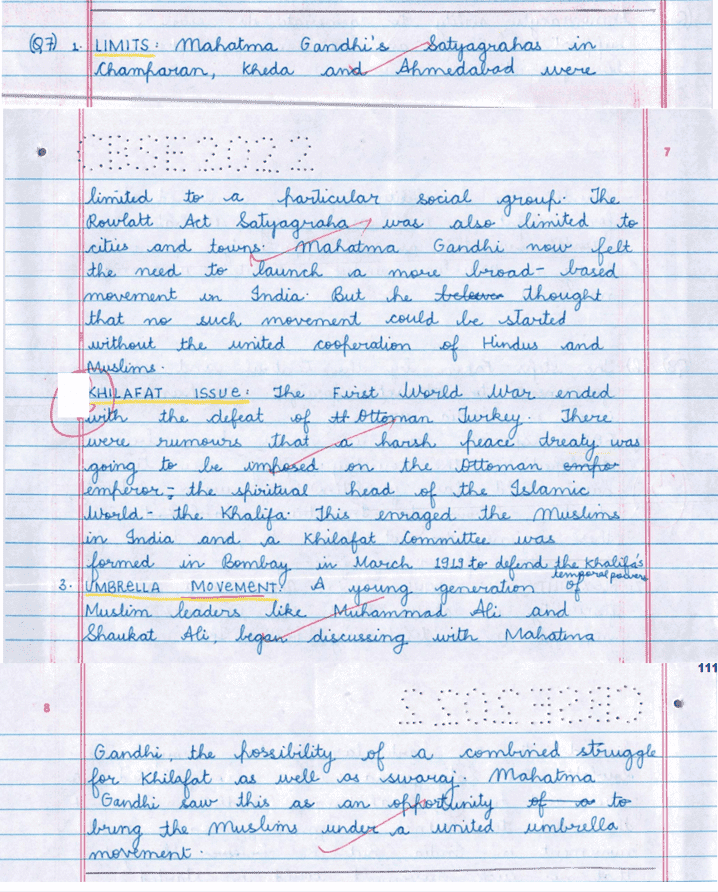 (Q7) 1. LIMITS: Mahatma Gandhi's Satyagrahas in
Champaran, Kheda and Ahmedabad were
CBSE2022
7
limited to a particular social group. The
Rowlatt Act Satyagraha was also limited to
cities and towns. Mahatma Gandhi now felt
the need to launch a more broad-based
movement in India. But he thought
that no such movement could be started
without the united cooperation of Hindus and
Muslims.
KHILAFAT ISSUE: The First World War ended
with the defeat of Ottoman Turkey. There
were rumours that a harsh peace dreaty was
going to be imposed on the Ottoman
emperor; the spiritual head of the Islamic
World - the Khalifa. This enraged the Muslims
in India and a Khilafat Committee was
formed in Bombay in March 1919 to defend the Khalifa's
temporal powers
3. UMBRELLA MOVEMENT: A young generation of
Muslim leaders like Muhammad Ali and
Shaukat Ali, began discussing with Mahatma
111
8
CBSE2022
Gandhi, the possibility of a combined struggle
for Khilafat as well as swaraj. Mahatma
Gandhi saw this as an opportunity of a to
bring the Muslims under a united umbrella
movement.